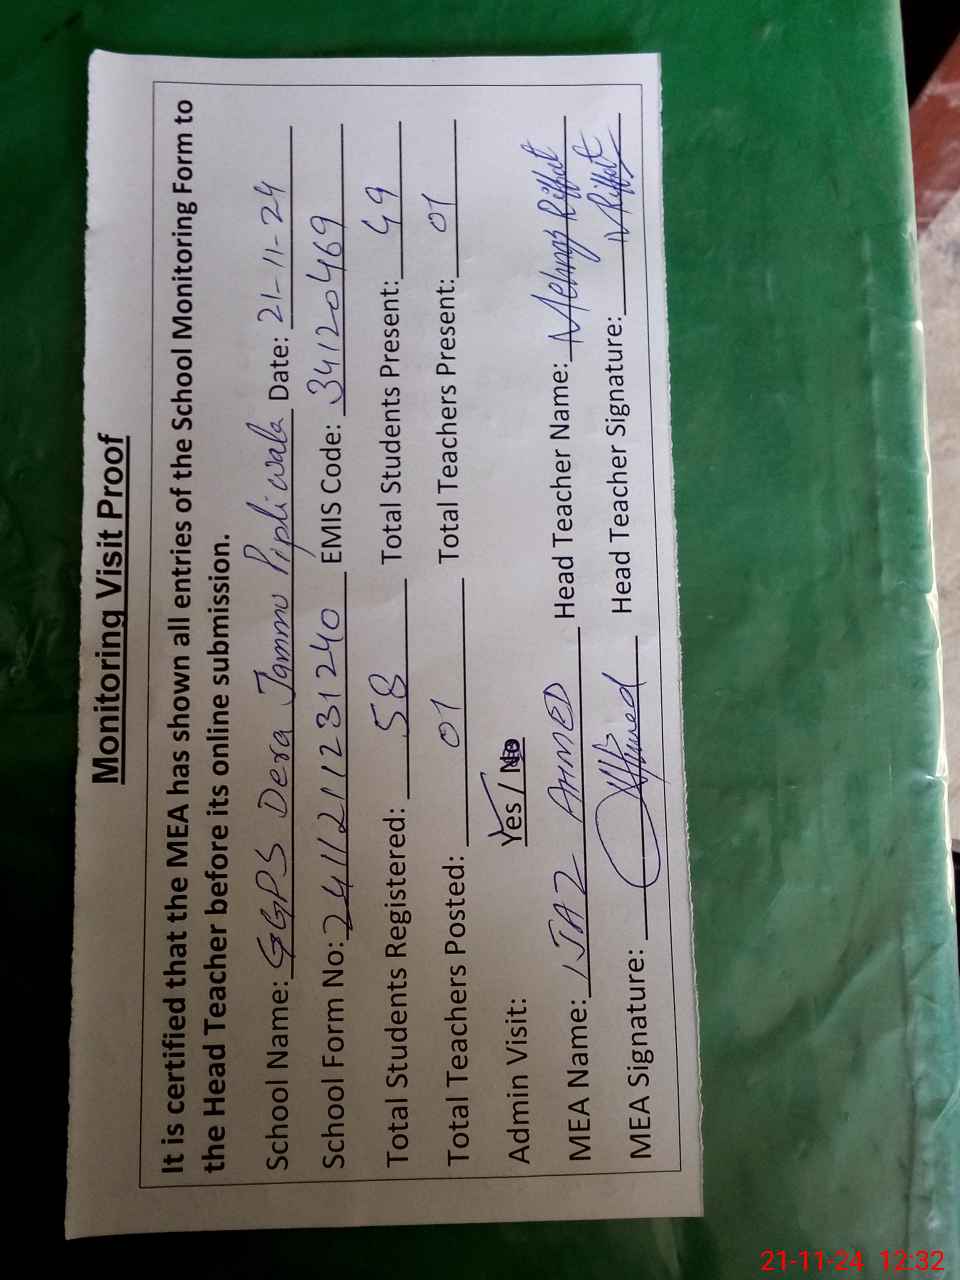 Monitoring Visit Proof
It is certified that the MEA has shown all entries of the School Monitoring Form to
the Head Teacher before its online submission.
School Name: GGPS Dera Jammu Pipliwala Date: 21-11-24
School Form No: 2411211231240 EMIS Code: 34120469
Total Students Registered: 58 Total Students Present: 49
Total Teachers Posted: 01 Total Teachers Present: 01
Admin Visit: Yes / No
MEA Name: IJAZ AHMED Head Teacher Name: Mehnaz Riffat
MEA Signature: Ahmed Head Teacher Signature: MRiffat
21-11-24 12:32